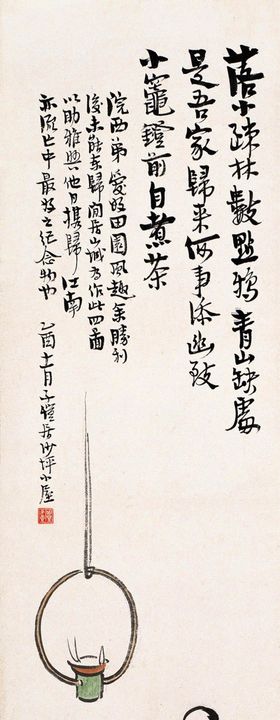 落小疎林數點鴉青山缺處
是吾家歸來何事添幽致
小竈鐙前自煮茶
浣西弟愛好田園風趣余勝利
後未能東歸閒居山城為作此四畫
以助雅興他日携歸江南
亦流亡中最好之紀念物也
乙酉十一月子愷居沙坪小屋